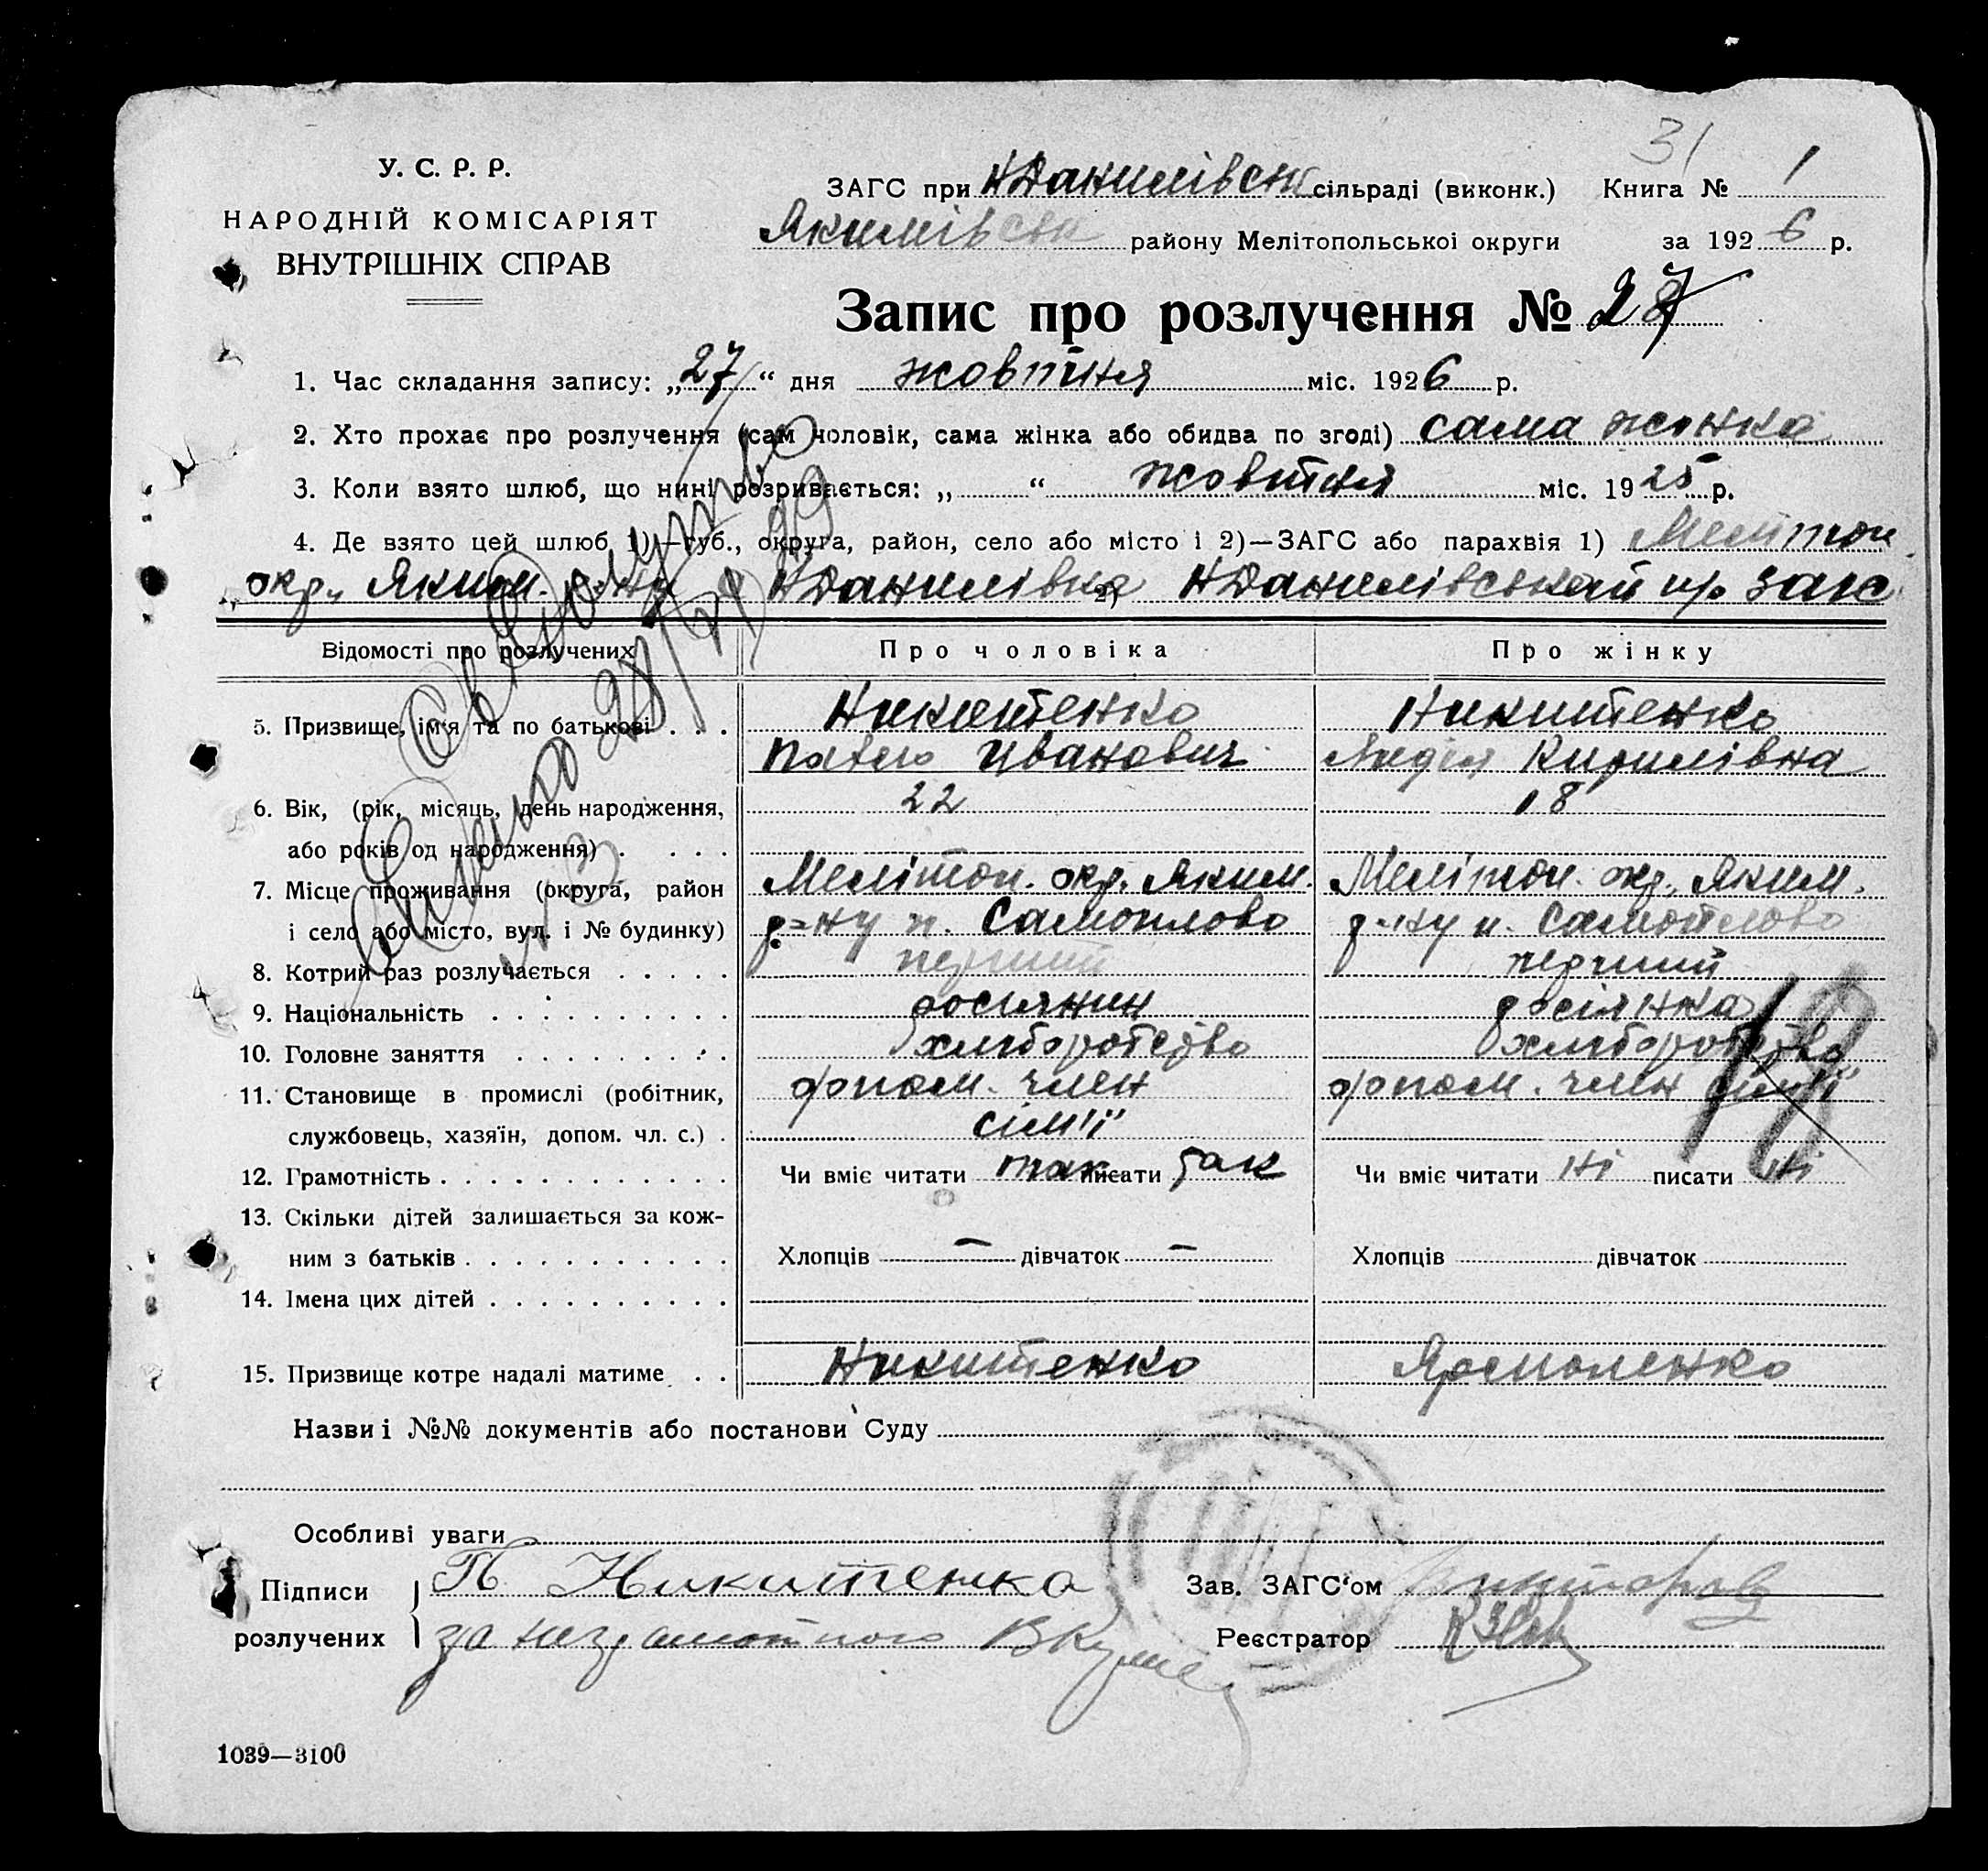 31
У. С. Р. Р.
НАРОДНІЙ КОМІСАРІЯТ
ВНУТРІШНІХ СПРАВ
ЗАГС при НДанилівськ сільраді (виконк.) Книга № 1
Якимівськ району Мелітопольської округи за 1926 р.
Запис про розлучення № 27
1. Час складання запису: „27“ дня жовтня міс. 1926 р.
2. Хто прохає про розлучення (сам чоловік, сама жінка або обидва по згоді) сама жінка
3. Коли взято шлюб, що нині розривається: „ “ жовтня міс. 1925 р.
4. Де взято цей шлюб 1)—губ., округа, район, село або місто і 2)—ЗАГС або парахвія 1) Мелітоп
окр. Яким. НДанилівка 2) НДанилівський пр Загс
Відомості про розлучених Про чоловіка Про жінку
5. Призвище, ім'я та по батькові . . . Никитенко Никитенко
Павло Иванович Лидія Кирилівна
6. Вік, (рік, місяць, день народження, 22 18
або років од народження) . . . .
7. Місце проживання (округа, район Мелітоп. окр. Яким. Мелітоп. окр. Яким.
і село або місто, вул. і № будинку) р-ну п. Самойлово р-ну п. Самойлово
8. Котрий раз розлучається . . . . . перший перший
9. Національність . . . . . . . . . . росиянин росіянка
10. Головне заняття . . . . . . . . . хліборобство хліборобство
11. Становище в промислі (робітник, допом. член допом. член сімьї
службовець, хазяїн, допом. чл. с.) . сімьї
12. Грамотність . . . . . . . . . . . . . Чи вміє читати так писати так Чи вміє читати ні писати ні
13. Скільки дітей залишається за кож-
ним з батьків . . . . . . . . . . . Хлопців — дівчаток — Хлопців дівчаток
14. Імена цих дітей . . . . . . . . . .
15. Призвище котре надалі матиме . . Никитенко Ярмоленко
Назви і №№ документів або постанови Суду
Особливі уваги
Підписи П Никитенка Зав. ЗАГС'ом
розлучених за неграмотного Реєстратор
1039—3100